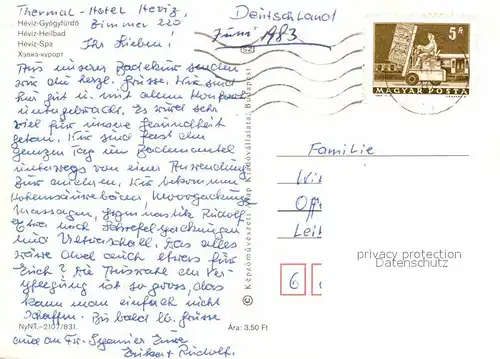 Thermal-Hotel Heviz,
Zimmer 220
Deutschland
Juni 1983
Hévíz-Gyógyfürdő
Hévíz-Heilbad
Hévíz-Spa
Хэвиз-курорт
Ihr Lieben!
Aus unserer Badekur senden
wir die herzl. Grüsse. Wir sind
hier gut u. mit allem Komfort
untergebracht. Es wird sehr
viel für unsere Gesundheit
getan. Wir sind fast den
ganzen Tag im Bademantel
unterwegs von einer Anwendung
zur anderen. Wir bekommen
Kohlensäurebäder, Moorpackungen
Massagen, Gymnastik Rudolf
noch Schwefelpackungen
und Ultraschall. Das alles
wäre doch auch etwas für
Euch? Die Auswahl der Ver-
pflegung ist so gross, das
kann man einfach nicht
schaffen. Bis bald lb. Grüsse
auch an Fr. Eure
Erika u. Rudolf.
NyNT.–2107/831.
Ára: 3,50 Ft
© Képzőművészeti Alap Kiadóvállalata, Budapest
52
5 Ft
MAGYAR POSTA
Familie
Wi
Off
Leit
6
privacy protection
Datenschutz